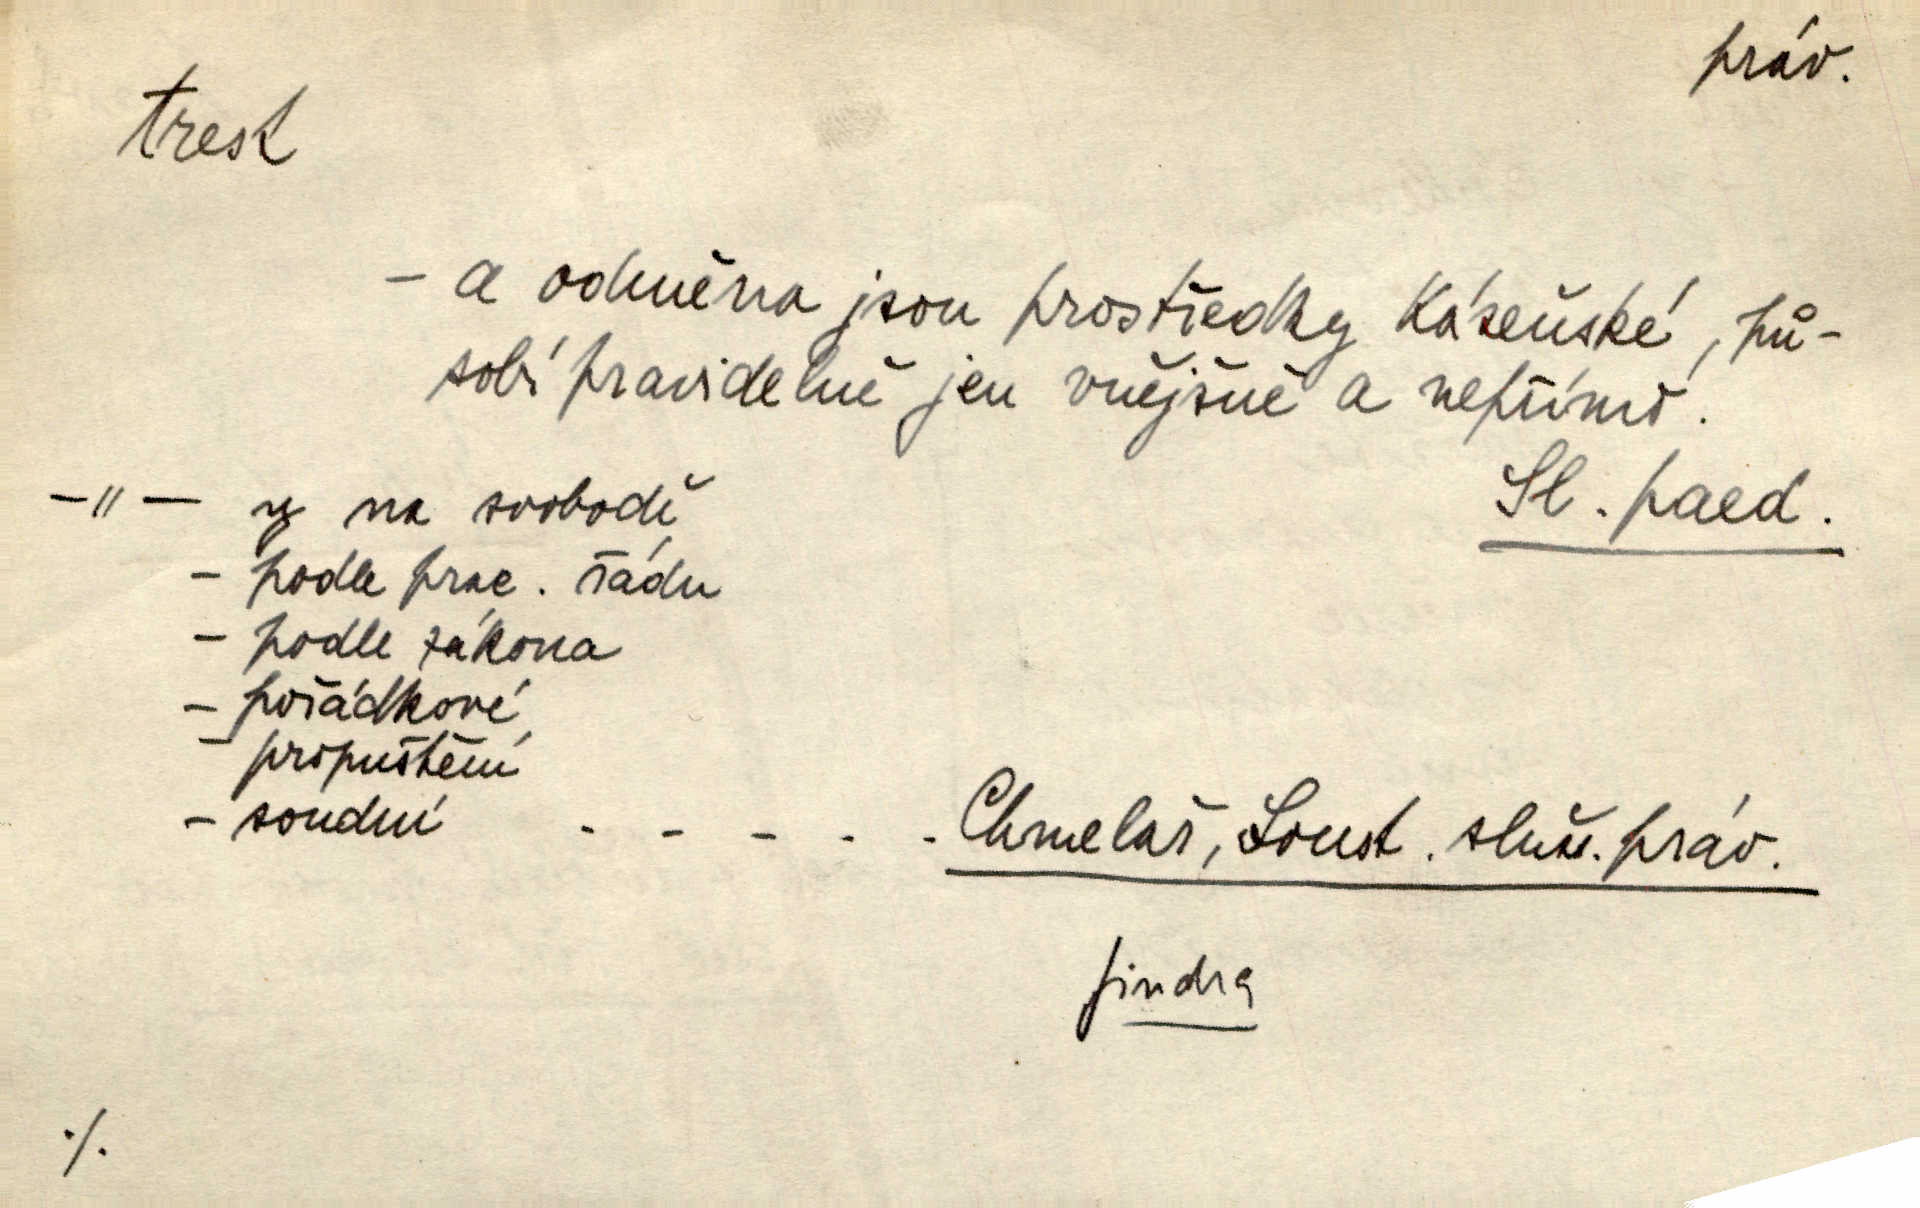 práv.
trest
- a odměna jsou prostředky kázeňské, pů-
sobí pravidelně jen vnějšně a nepřímo.
Sl. paed.
-"- y na svobodě
- podle prac. řádu
- podle zákona
- pořádkové
- propuštění
- soudní - - - - - Chmelař, Soust. služ. práv.
Jindra
./.